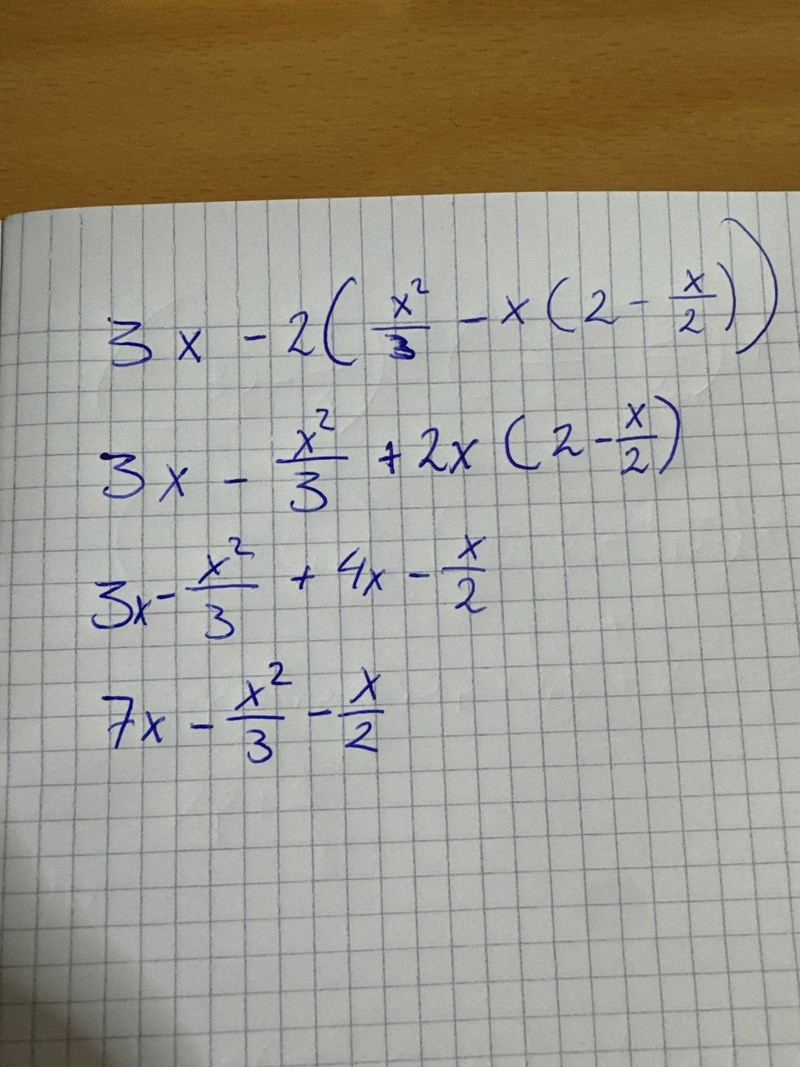 3x - 2(x²/3 - x(2 - x/2))
3x - x²/3 + 2x(2 - x/2)
3x - x²/3 + 4x - x/2
7x - x²/3 - x/2